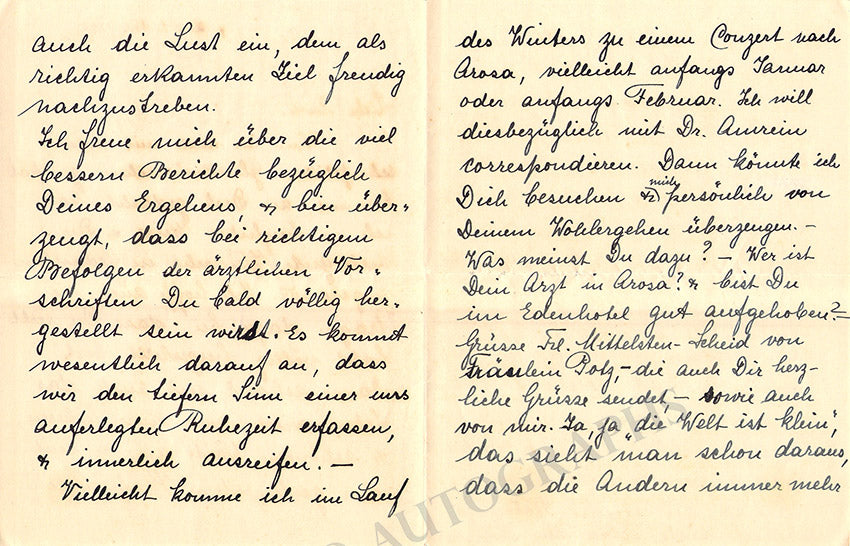 auch die Lust ein, dem als
richtig erkannten Ziel freudig
nachzustreben.
Ich freue mich über die viel
bessern Berichte bezüglich
Deines Ergehens, & bin über=
zeugt, dass bei richtigem
Befolgen der ärztlichen Vor=
schriften Du bald völlig her=
gestellt sein wirst. Es kommt
wesentlich darauf an, dass
wir den tiefern Sinn einer uns
auferlegten Ruhezeit erfassen,
& innerlich ausreifen. —
Vielleicht komme ich im Lauf
des Winters zu einem Conzert nach
Arosa, vielleicht anfangs Januar
oder anfangs Februar. Ich will
diesbezüglich mit Dr. Amrein
correspondieren. Dann könnte ich
Dich besuchen & mich persönlich von
Deinem Wohlergehen überzeugen. —
Was meinst Du dazu? — Wer ist
Dein Arzt in Arosa? & bist Du
im Edenhotel gut aufgehoben? —
Grüsse Frl. Mittelsten-Scheid von
Fräulein Potz, — die auch Dir herz-
liche Grüsse sendet — sowie auch
von mir. Ja, ja die "Welt ist klein",
das sieht "man schon daraus,
dass die Andern immer mehr
AUTOGRAPHS